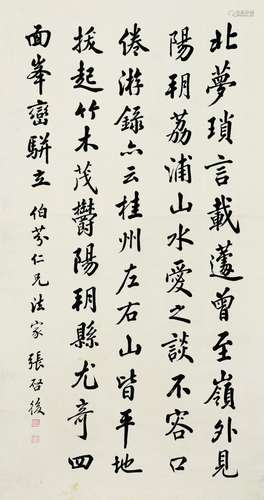 北夢瑣言載蘧曾至嶺外見
陽朔荔浦山水愛之談不容口
倦游錄亦云桂州左右山皆平地
拔起竹木茂鬱陽朔縣尤奇四
面峯巒駢立 伯芬仁兄法家 張啓後